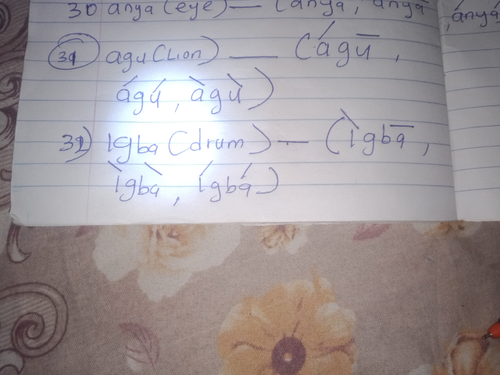 30 anya (eye) — (anya, anyā
, ányá
31 agu (Lion) — (ágū,
ágú, àgù)
32) Igba (drum) — (Ìgbā,
Ìgbà, Ígbá)